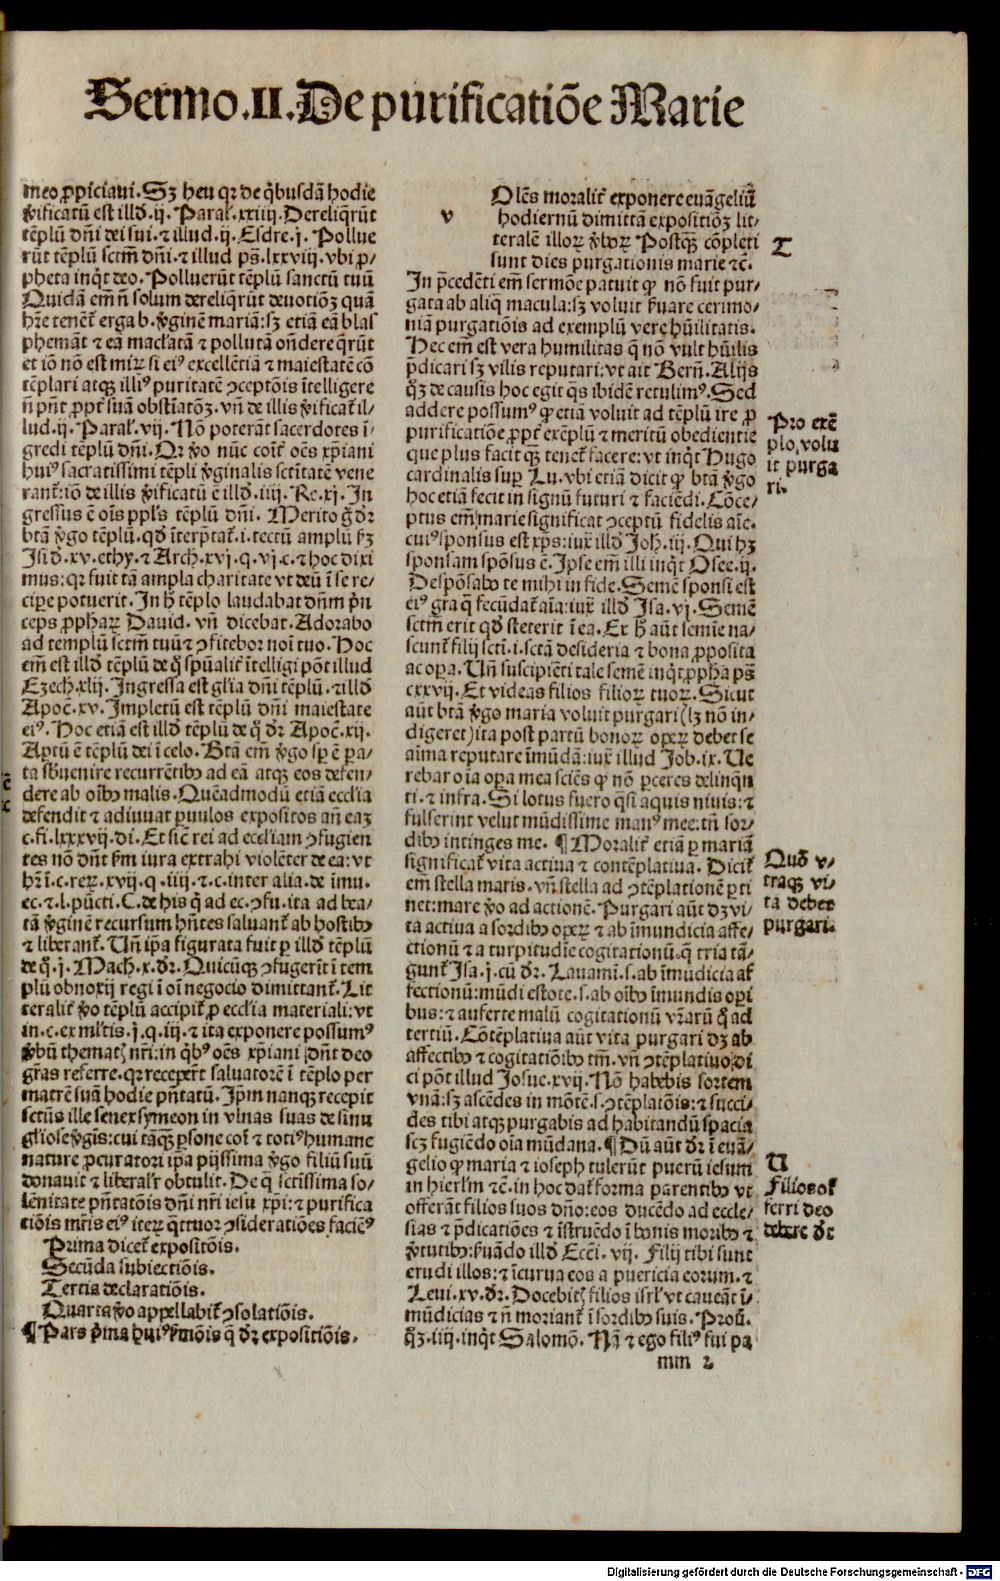 Sermo.II.De purificatiōe Marie
meo ꝓpiciaui. Sꝫ heu qꝛ de q̄busdā hodie
v̄ificatū est illđ.ij. Paral̕.xxiiij. Dereliq̄rūt
tēplū dn̄i dei sui. ⁊ illud.ij. Esdre.j. Pollue
rūt tēplū sctm̄ dn̄i. ⁊ illud ps̄.lxxviij. vbi ꝓ-
pheta inq̇t deo. Polluerūt tēplū sanctū tuū
Quidā em̄ n̄ solum dereliq̄rūt deuotiōꝫ quā
hr̄e tenēt̕ erga b. v̄ginē mariā: sꝫ etiā eā blas
phemāt ⁊ eā macl̕atā ⁊ pollutā on̄dere q̄rūt
et iō nō est mirꝝ si ei⁹ excellētiā ⁊ maiestatē cō
tēplari atqꝫ illi⁹ puritatē ↄceptōis ītelligere
n̄ pn̄t ꝓpt̕ suā obstīatōꝫ. vn̄ de illis v̄ificat̕ il-
lud.ij. Paral̕.vij. Nō poterāt sacerdotes ī-
gredi tēplū dn̄i. Qꝛ v̄o nūc coit̕ oēs xp̄iani
hui⁹ sacratissimi tēpli v̄ginalis sctītatē vene
rant̕: iō de illis v̄ificatū ē illđ.iiij. Re.xj. In
gressus ē oīs ppl̕s tēplū dn̄i. Merito g̊ dr̄
btā v̄go tēplū. qđ īterp̄tat̕.i. tectū amplū ẜꝫ
Isiđ.xv. ethy. ⁊ Arch.xvj.q.vj.c. ⁊ hoc dixi
mus: qꝛ fuit tā ampla charitate vt deū ī se re-
cipe potuerit. In h̄ tēplo laudabat dn̄m p̄n
ceps ꝓpharꝝ Dauid. vn̄ dicebat. Adorabo
ad templū sctm̄ tuū ⁊ ↄfitebor noī tuo. Hoc
em̄ est illđ tēplū de q̊ spūalit̕ ītelligi pōt illud
Ezech.xlij. Ingressa est gl̕ia dn̄i tēplū. ⁊ illđ
Apoc̄.xv. Impletū est tēplū dn̄i maiestate
ei⁹. Hoc etiā est illđ tēplū de q̊ dr̄ Apoc̄.xij.
Aptū ē tēplū dei ī celo. Btā em̄ v̄go sp̄ ē pa-
ta sbuenire recurrētibꝰ ad eā atqꝫ eos defen-
dere ab oībꝰ malis. Quēadmodū etiā eccl̕ia
defendit ⁊ adiuuat puulos expositos an̄ eaꝫ
c.fi.lxxxvij.di. Et sic̄ rei ad eccl̕iam ↄfugien
tes nō dn̄t ẜm iura extrahi violēter de ea: vt
hr̄ i.c. rerꝝ.xvij.q.iiij. ⁊.c. inter alia. de īmu.
ec. ⁊.l. pūcti. C. de his q̄ ad ec. ↄfu. ita ad bea-
tā v̄ginē recursum hn̄tes saluant̕ ab hostibꝰ
⁊ liberant̕. Un̄ ip̄a figurata fuit p illđ tēplū
de q̊.j. Mach.x. dr̄. Quicūqꝫ ↄfugerīt ī tem
plū obnoxij regi ī oī negocio dimittant̕. Lit
teralit̕ v̄o tēplū accipit̕ ꝓ eccl̕ia materiali: vt
in.c. ex ml̕tis.j.q.iij. ⁊ ita exponere possum⁹
v̄bū themat̕ nr̄i: in q̄b⁹ oēs xp̄iani dn̄t deo
gr̄as referre. qꝛ recepert̄ saluatorē ī tēplo per
matrē suā hodie pn̄tatū. Ip̄m nanqꝫ recepit
sctūs ille senex symeon in vlnas suas de sinu
gl̕iose v̄gīs: cui tāqꝫ psone coīt̕ ⁊ toti⁹ humane
nature ꝓcuratori ip̄a pijssima v̄go filiū suū
donauit ⁊ liberal̕r obtulit. De q̊ sctīssima so-
lēnitate pn̄tatōis dn̄i nr̄i iesu xp̄i: ⁊ purifica
tiōis mr̄is ei⁹ iterꝝ q̄ttuor ↄsideratiōes faciēꝰ
Prima dicet̕ expositōis.
Secūda subiectiōis.
Tertia declaratiōis.
Quarta v̄o appellabit̕ ↄsolatiōis.
¶ Pars p̄ma hui⁹ ẜmōis q̄ dr̄ expositiōis.
v
Olēs moralit̕ exponere euāgeliū
hodiernū dimittā expositiōꝫ lit-
teralē illorꝝ v̄borꝝ Postqꝫ cōpleti
sunt dies purgationis marie ⁊c̄.
In p̄cedēti em̄ sermōe patuit ꝙ nō fuit pur-
gata ab aliq̄ macula: sꝫ voluit ẜuare cerimo-
niā purgatiōis ad exemplū vere hūilitatis.
Hec em̄ est vera humilitas q̄ nō vult hūilis
p̄dicari sꝫ vilis reputari: vt ait Bern̄. Alijs
q̄ꝫ de causis hoc egit q̄s ibidē retulim⁹. Sed
addere possum⁹ ꝙ etiā voluit ad tēplū ire ꝓ
purificatiōe ꝓpt̕ exēplū ⁊ meritū obedientie
que plus facit qꝫ tenet̕ facere: vt inq̇t Hugo
cardinalis sup Lu. vbi etiā dicit ꝙ btā v̄go
hoc etiā fecit in signū futuri ⁊ faciēdi. Cōce-
ptus em̄ marie significat ↄceptū fidelis aīe.
cui⁹ sponsus est xp̄s: iux̄ illđ Joh.iij. Qui hꝫ
sponsam spōsus ē. Ipse em̄ illi inq̇t Osee.ij.
Despōsabo te mihi in fide. Semē sponsi est
ei⁹ gr̄a q̄ fecūdat̕ aīa: iux̄ illđ Isa.vj. Semē
sctm̄ erit qđ steterit ī ea. Ex h̄ aūt semīe na-
scunt̕ filij scti.i. sctā desideria ⁊ bona ꝓposita
ac opa. Un̄ suscipiēti tale semē inq̇t ꝓpha ps̄
cxxvij. Et videas filios filiorꝝ tuorꝝ. Sicut
aūt btā v̄go maria voluit purgari (lꝫ nō in-
digeret) ita post partū bonorꝝ operꝝ debet se
aīma reputare īmūdā: iux̄ illud Job.ix. Ue
rebar oīa opa mea sciēs ꝙ nō pceres delinqn̄
ti. ⁊ infra. Si lotus fuero q̄si aquis niuis: ⁊
fulserint velut mūdissime man⁹ mee: tn̄ sor-
dibꝰ intinges me. ¶ Moralit̕ etiā p mariā
significat̕ vita actiua ⁊ contēplatiua. Dicit̕
em̄ stella maris. vn̄ stella ad ↄtēplationē pti
net: mare v̄o ad actionē. Purgari aūt dꝫ vi-
ta actiua a sordibꝰ operꝝ ⁊ ab īmundicia affe-
ctionū ⁊ a turpitudīe cogitationū. q̄ tria tā-
gunt̕ Isa.j. cū dr̄. Lauamī. s. ab īmūdicia af
fectionū: mūdi estote. s. ab oībꝰ īmundis opi
bus: ⁊ auferte malū cogitationū vr̄arū q̊ ad
tertiū. Cōtēplatiua aūt vita purgari dꝫ ab
affectibꝰ ⁊ cogitatiōibꝰ tm̄. vn̄ ↄtēplatiuo di
ci pōt illud Josue.xvij. Nō habebis sortem
vnā: sꝫ ascēdes in mōtē. s. ↄtēplatōis: ⁊ succi-
des tibi atqꝫ purgabis ad habitandū spacia
scꝫ fugiēdo oīa mūdana. ¶ Dū aūt dr̄ ī euā-
gelio ꝙ maria ⁊ ioseph tulerūt puerū iesum
in hierl̕m ⁊c̄. in hoc dat̕ forma parentibꝰ vt
offerāt filios suos dn̄o: eos ducēdo ad eccle-
sias ⁊ p̄dicatiōes ⁊ īstruēdo ī bonis moribꝰ ⁊
v̄tutibꝰ: ẜuādo illđ Ecci.vij. Filij tibi sunt
erudi illos: ⁊ īcurua eos a puericia eorum. ⁊
Leui.xv. dr̄. Docebit̕ filios isrl̕ vt caueāt ī-
mūdicias ⁊ n̄ moriant̕ ī sordibꝰ suis. Prou̅.
q̄ꝫ.iiij. inq̇t Salomō. Nā ⁊ ego fili⁹ fui pa
mm 2
T
Pro exē
plo, volu
it purga
ri.
Quō v-
traqꝫ vi-
ta debet
purgari.
U
Filios of
ferri deo
debere đt